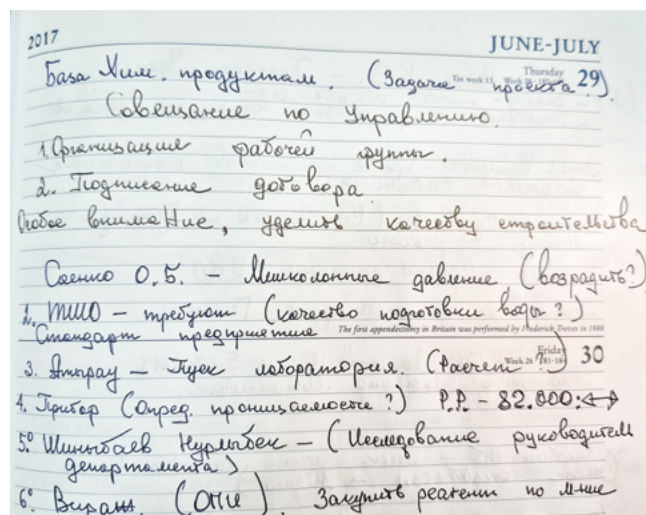 2017 JUNE-JULY
Thursday 29
База Хим. продуктам. (Задача проекта?).
Совещание по Управлению.
1. Организация рабочей группы.
2. Подписание договора
Особое внимание, уделить качеству строительства
Саенко О.Б. – давление (возрадить?)
2. ТШО – требуют (качество подготовки воды?)
Стандарт предприятие
The first appendectomy in Britain was performed by Frederick Treves in 1888
Friday 30
3. Атырау – Пуск лаборатория. (Расчет?)
4. Прибор (Опред. проницаемости?) Р.Р. – 82.000:
5. Шиныбаев Нурлыбек – (Исследование руководителем
департамента)
6. Вираж. (ОПИ). Закупить реагент по